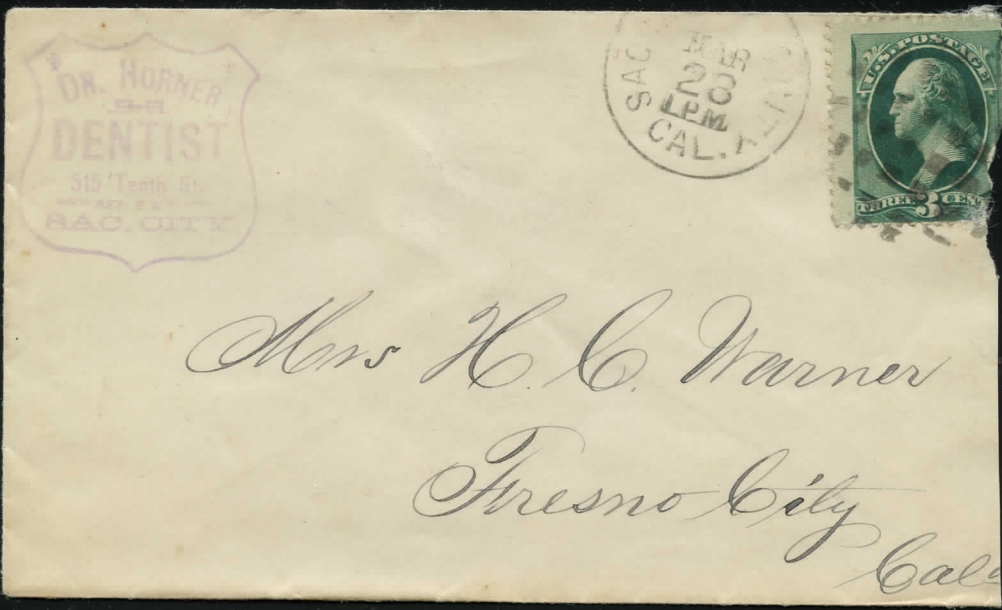 DR. HORNER
DENTIST
515 Tenth St.
SAC. CITY
SAC
CAL.
MAR
20
1 PM
U.S. POSTAGE
THREE 3 CENT
Mrs H. C. Warner
Fresno City
Cala